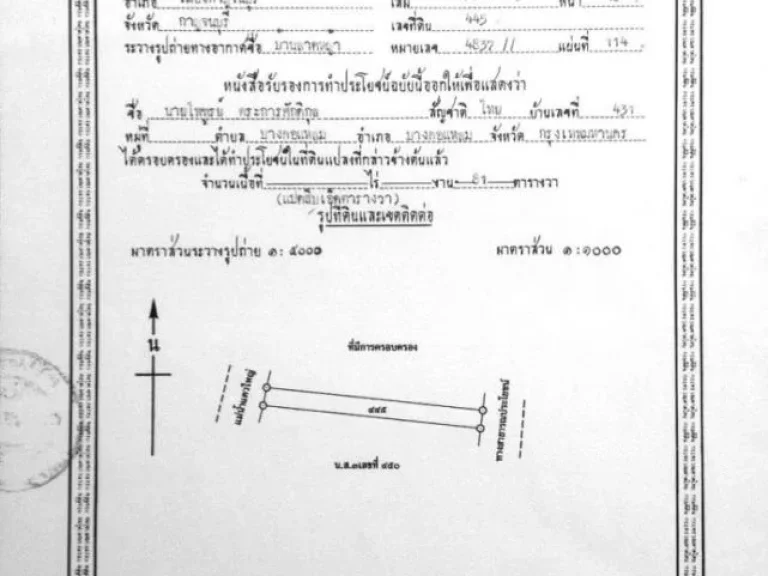 อำเภอ เล่ม หน้า
จังหวัด กาญจนบุรี เลขที่ดิน 445
ระวางรูปถ่ายทางอากาศชื่อ บ้านลาดหญ้า หมายเลข 4837 II แผ่นที่ 114
หนังสือรับรองการทำประโยชน์ฉบับนี้ออกให้เพื่อแสดงว่า
ชื่อ นายไพฑูรย์ ตระการศักดิกุล สัญชาติ ไทย บ้านเลขที่ 431
หมู่ที่ ตำบล บางคอแหลม อำเภอ บางคอแหลม จังหวัด กรุงเทพมหานคร
ได้ครอบครองและได้ทำประโยชน์ในที่ดินแปลงที่กล่าวข้างต้นแล้ว
จำนวนเนื้อที่ ไร่ งาน 81 ตารางวา
(แปดสิบเอ็ดตารางวา)
รูปที่ดินและเขตติดต่อ
มาตราส่วนระวางรูปถ่าย ๑: ๕๐๐๐ มาตราส่วน ๑:๑๐๐๐
น
ที่มีการครอบครอง
แม่น้ำแควใหญ่
๔๔๕
ทางสาธารณประโยชน์
น.ส.๓เลขที่ ๔๕๐